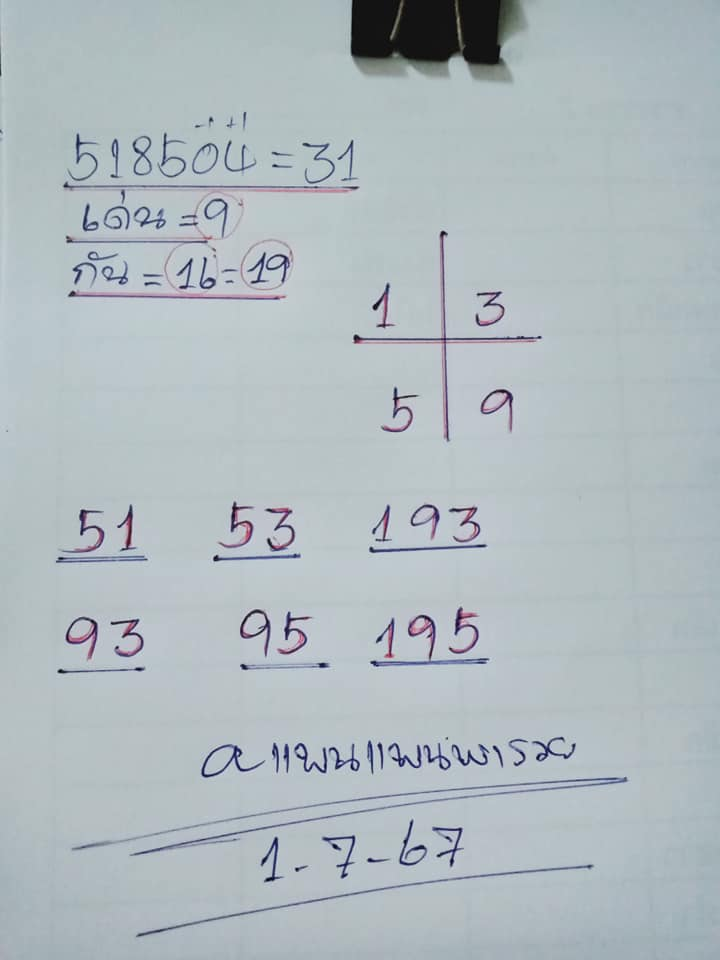 -1 +1
518504 = 31
เด่น = 9
กัน = 16 = 19
1 3
5 9
51 53 193
93 95 195
aแพนแพนพารวย
1-7-67